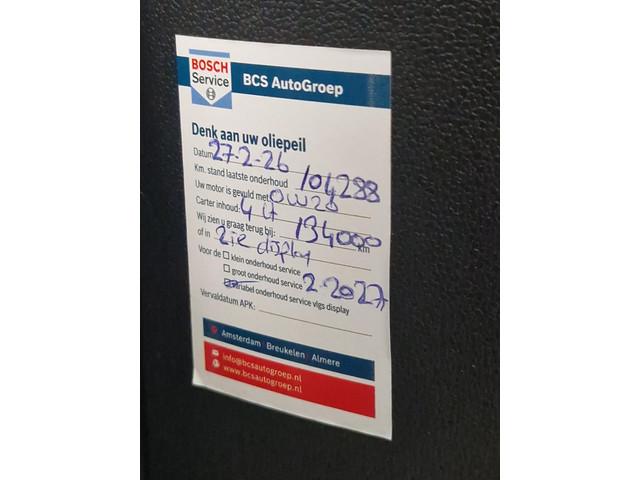 BOSCH
Service
BCS AutoGroep
Denk aan uw oliepeil
Datum 27-2-26
Km. stand laatste onderhoud 104288
Uw motor is gevuld met 0W20
Carter inhoud: 4 lt
Wij zien u graag terug bij: 134000 km
of in zie display
Voor de klein onderhoud service
groot onderhoud service 2-2027
variabel onderhoud service vlgs display
Vervaldatum APK:
Amsterdam Breukelen Almere
info@bcsautogroep.nl
www.bcsautogroep.nl